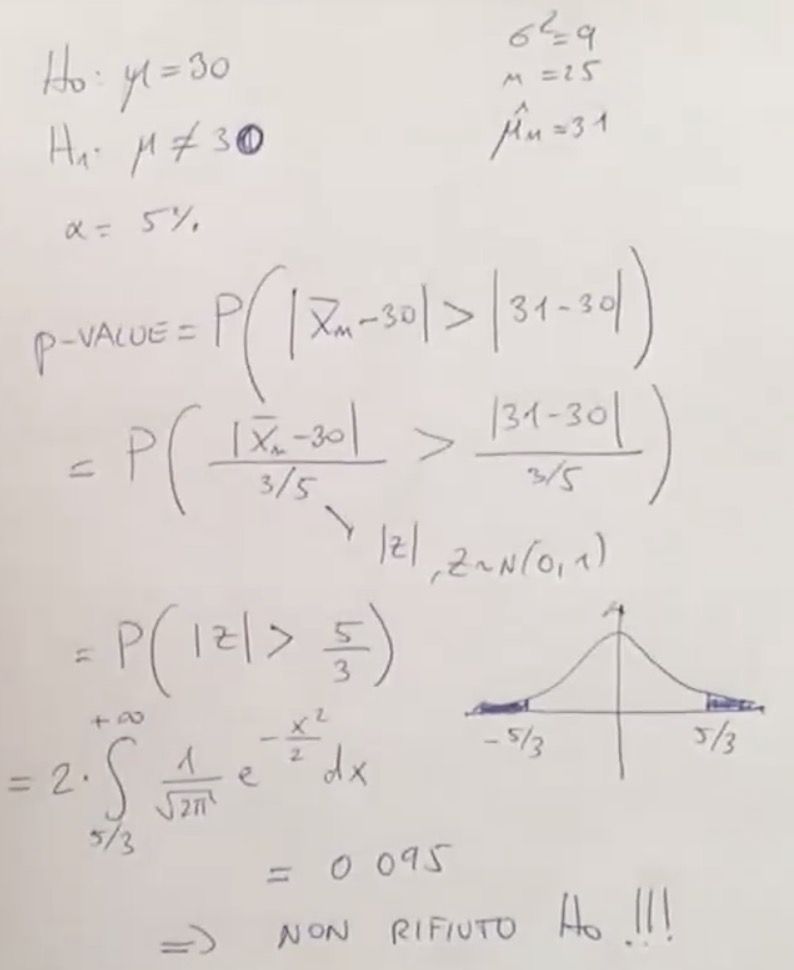 H₀: μ = 30
σ² = 9
n = 25
μ̂ₙ = 31
H₁: μ ≠ 30
α = 5%
P-VALUE = P(|X̄ₙ - 30| > |31 - 30|)
= P(|X̄ₙ - 30| / 3/5 > |31 - 30| / 3/5)
|Z|, Z ~ N(0, 1)
= P(|Z| > 5/3)
-5/3 5/3
= 2 · ∫_{5/3}^{+∞} 1/√2π e^{-x²/2} dx
= 0 095
⇒ NON RIFIUTO H₀ !!!